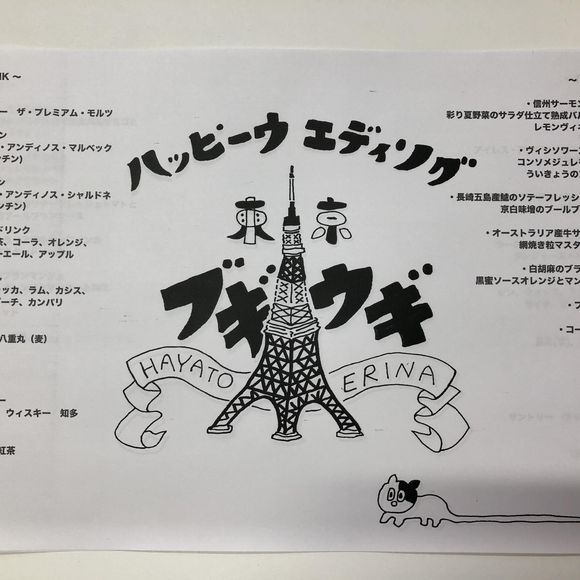 NK ～
ー　ザ・プレミアム・モルツ
ン
・アンディノス・マルベック
チン）
ン
・アンディノス・シャルドネ
チン）
ドリンク
茶、コーラ、オレンジ、
ーエール、アップル
ッカ、ラム、カシス、
ーチ、カンパリ
八重丸（麦）
ー
ウィスキー　知多
紅茶
ハッピーウエディング
東京
ブギウギ
HAYATO ERINA
～
・信州サーモン
彩り夏野菜のサラダ仕立て熟成バル
レモンヴィネ
・ヴィシソワース
コンソメジュレ
ういきょうの
・長崎五島産鱸のソテーフレッシ
京白味噌のブールブ
・オーストラリア産牛サ
網焼き粒マスタ
・白胡麻のブラ
黒蜜ソースオレンジとマン
・ブ
・コー